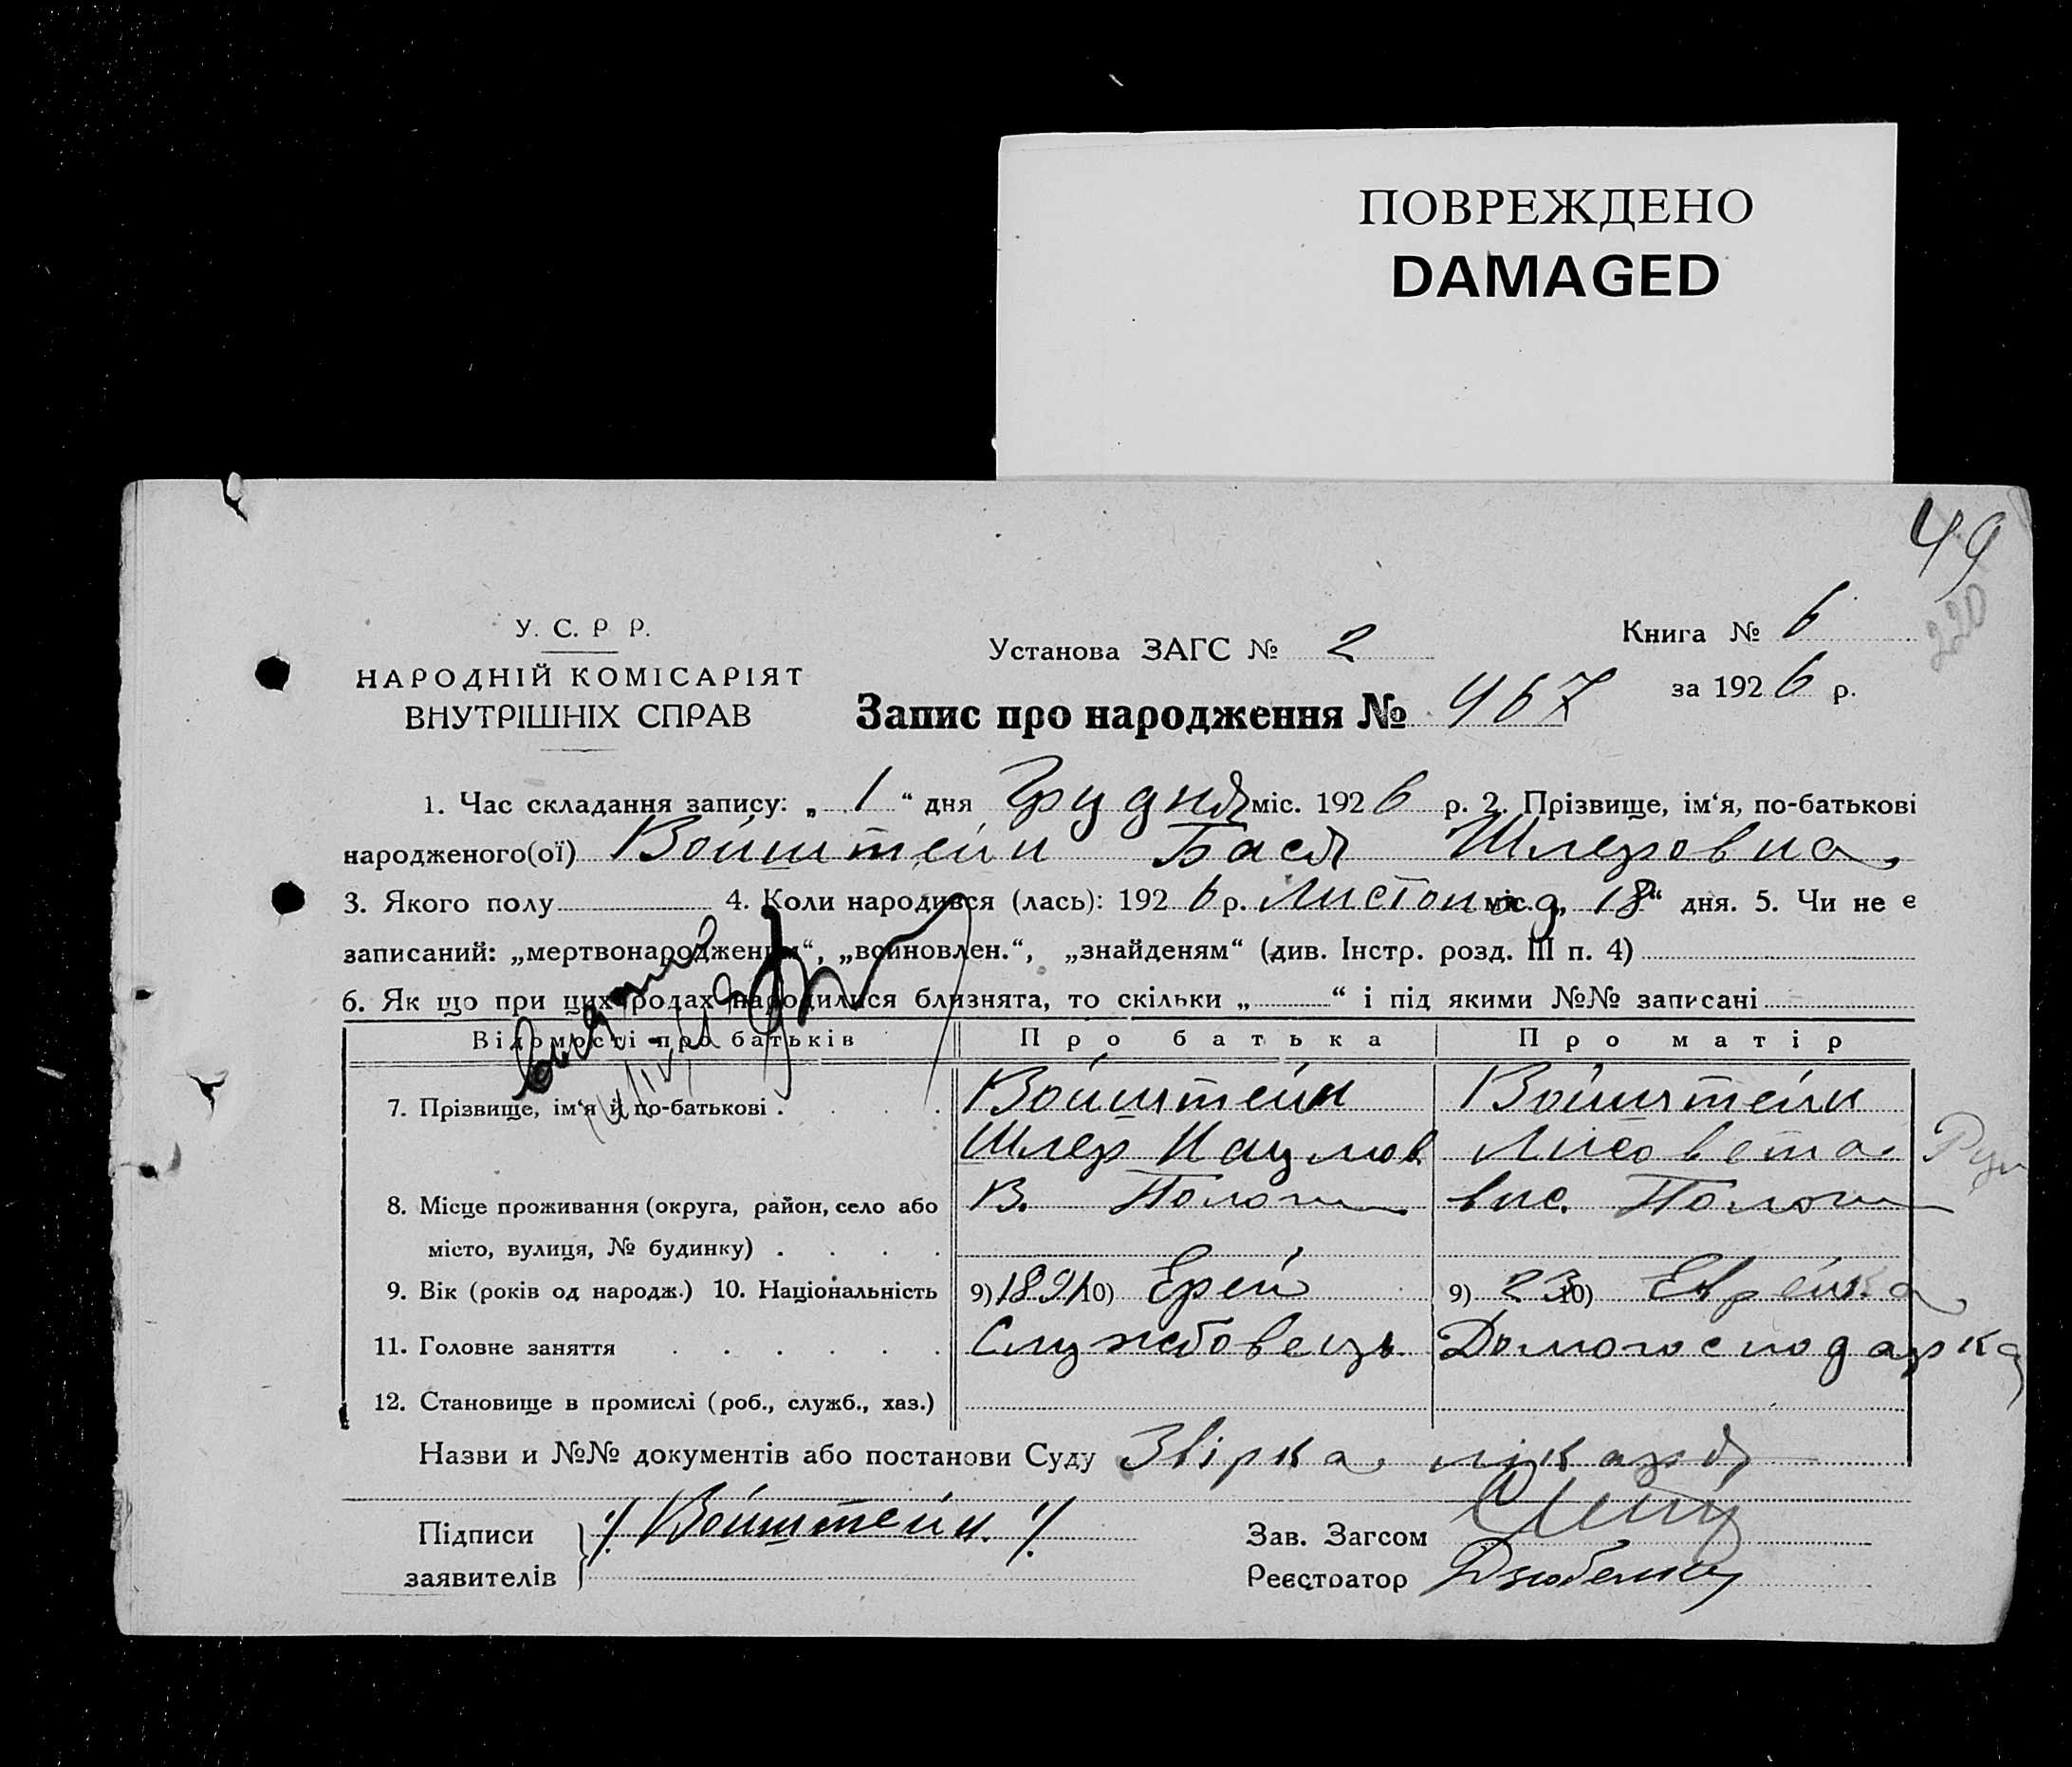 ПОВРЕЖДЕНО
DAMAGED
49
220
У. С. Р Р.
НАРОДНІЙ КОМІСАРІЯТ
ВНУТРІШНІХ СПРАВ
Установа ЗАГС № 2
Книга № 6
за 1926 р.
Запис про народження № 467
1. Час складання запису: „ 1 “ дня Грудня міс. 1926 р. 2. Прізвище, ім‘я, по-батькові
народженого(ої) Войнштейн Бася Шлеровна
3. Якого полу 4. Коли народився (лась): 1926 р. Листопад міс. „ 18 “ дня. 5. Чи не є
записаний: „мертвонародженим“, „воиновлен.“, „знайденям“ (див. Інстр. розд. III п. 4)
6. Як що при цих родах народилися близнята, то скільки „ “ і під якими №№ записані
Відомості про батьків Про батька Про матір
7. Прізвище, ім‘я й по-батькові . Войнштейн Войнштейн
Шлер Наумов
8. Місце проживання (округа, район, село або В. Пологи Пологи
місто, вулиця, № будинку)
9. Вік (років од народж.) 10. Національність 9) 1891 10) Ерей 9) 23 10) Еврейка
11. Головне заняття Службовець Домогосподарка
12. Становище в промислі (роб., служб., хаз.)
Назви и №№ документів або постанови Суду Звірка лікаря
Підписи заявителів ·/. Войнштейн ·/.
Зав. Загсом
Реєстратор Дзюбенко